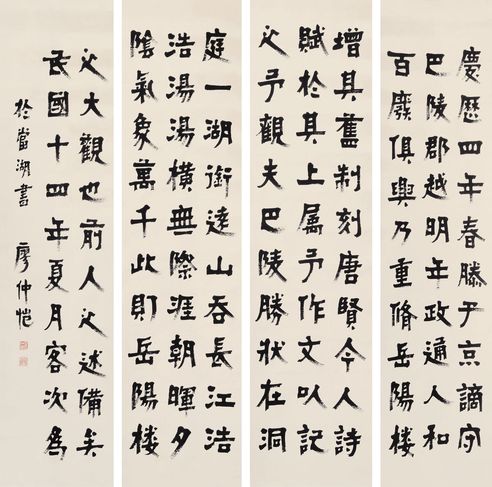 慶歷四年春滕子京謫守
巴陵郡越明年政通人和
百廢俱興乃重脩岳陽楼
增其舊制刻唐賢今人詩
賦於其上属予作文以記
之予觀夫巴陵勝狀在洞
庭一湖銜遠山吞長江浩
浩湯湯橫無際涯朝暉夕
陰氣象萬千此則岳陽楼
之大觀也前人之述備矣
民國十四年夏月客次為
於當湖書 廖仲愷